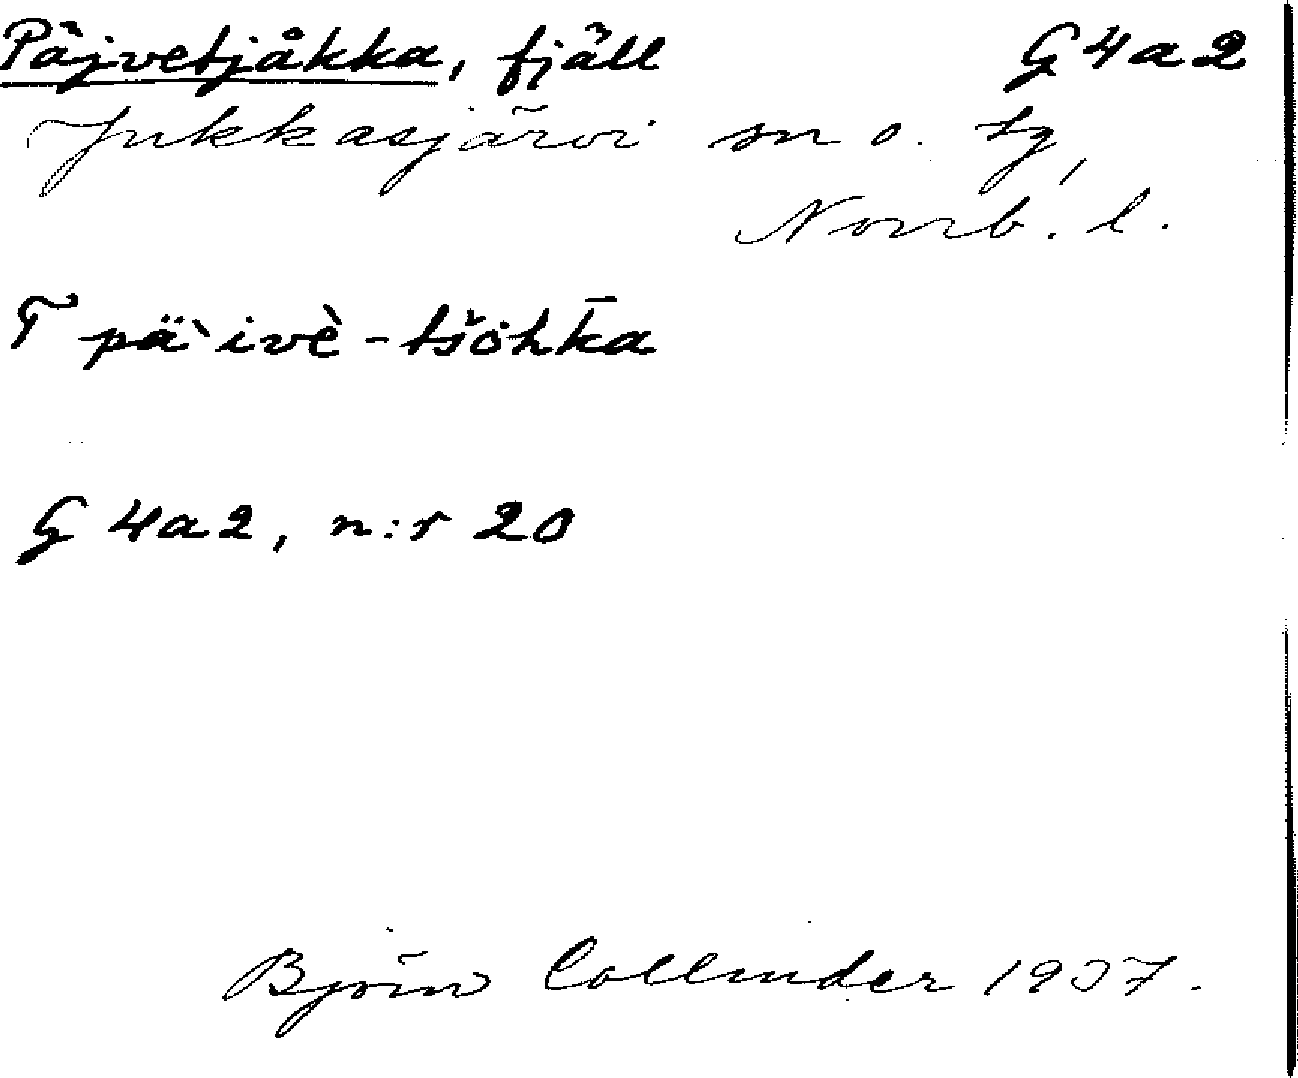 Päjvetjåkka, fjäll G4a2
Jukkasjärvi sn o. tg,
Norrb. l.
T pä̀ivè-tšòhka
G 4a2, n:r 20
Björn Collinder 1937.